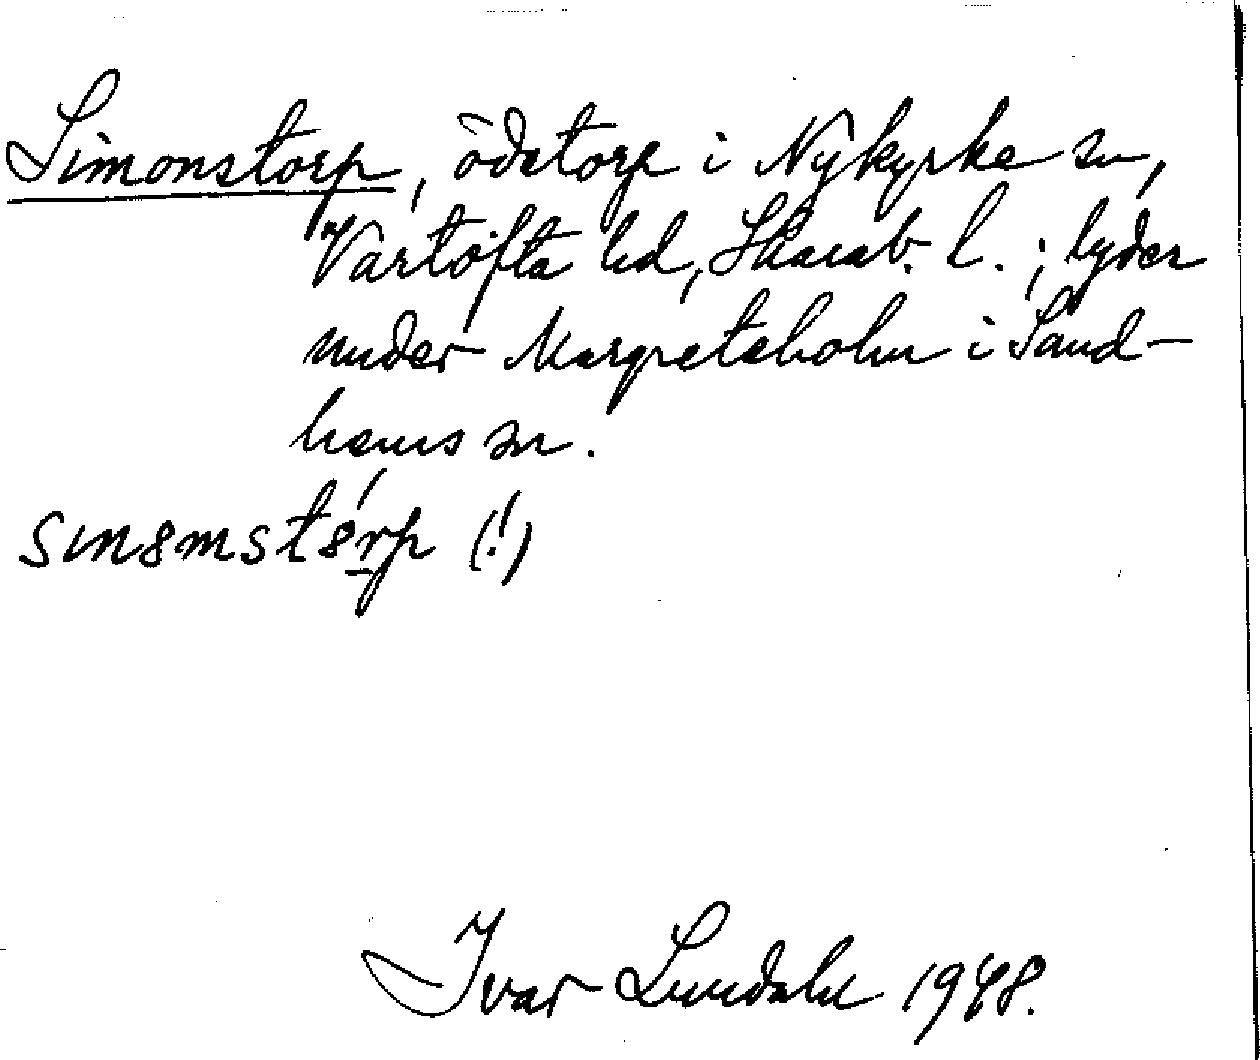 Simonstorp, ödetorp i Nykyrke sn,
Vartofta hd, Skarab. l. ; lyder
under Margreteholm i Sand-
hems sn.
sɪnɜmstɜrp (!)
Ivar Lundahl 1948.